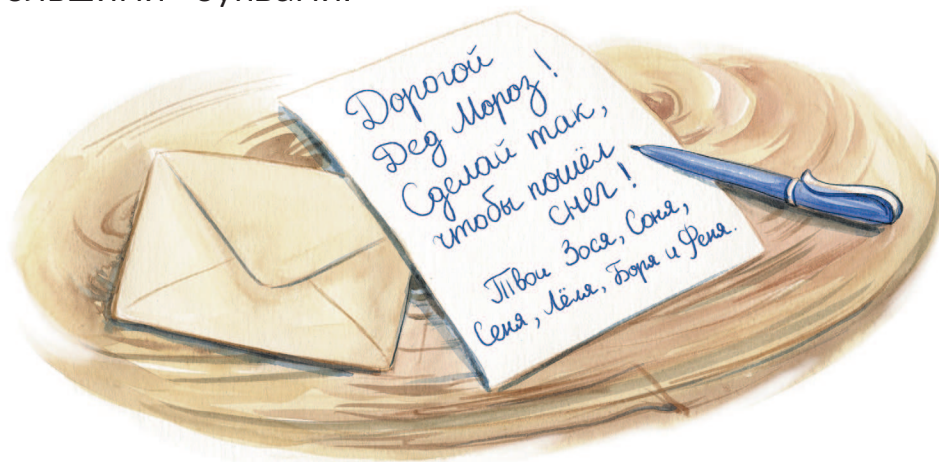 буквами.
Дорогой
Дед Мороз!
Сделай так,
чтобы пошёл
снег!
Твои Зося, Соня,
Сеня, Лёля, Боря и Феня.